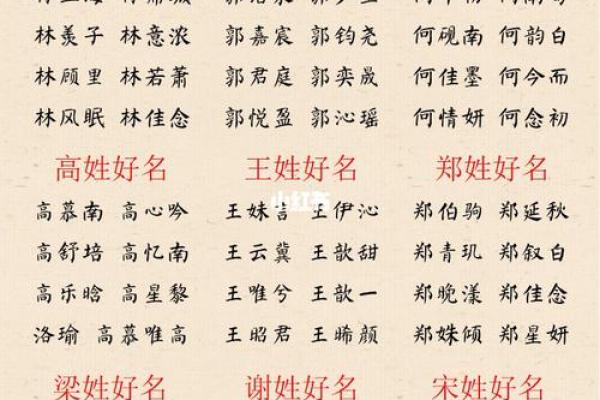 林羡子 林意浓 郭嘉宸 郭钧尧 何砚南 何韵白
林顾里 林若萧 郭君庭 郭奕晟 何佳墨 何今而
林风眠 林佳念 郭悦盈 郭沁瑶 何情妍 何念初
高姓好名 王姓好名 郑姓好名
小红书
高慕南 高心吟 王妹言 王伊沁 郑伯驹 郑延秋
高舒培 高忆南 王云冀 王歆甜 郑青玑 郑叙白
高乐晗 高星黎 王唯兮 王歆一 郑晚漾 郑佳念
洛瑜 高慕唯高 王昭君 王晞颜 郑姝倾 郑星妍
梁姓好名 谢姓好名 宋姓好名